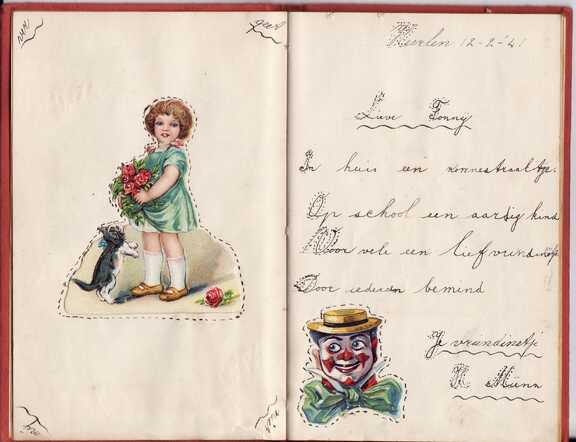 Heerlen 12-2-'41
Lieve Tonny
In huis een zonnestraaltje.
Op school een aardig kind
Voor vele een lief vriendinetje
Door iederen bemind
Je vriendinetje